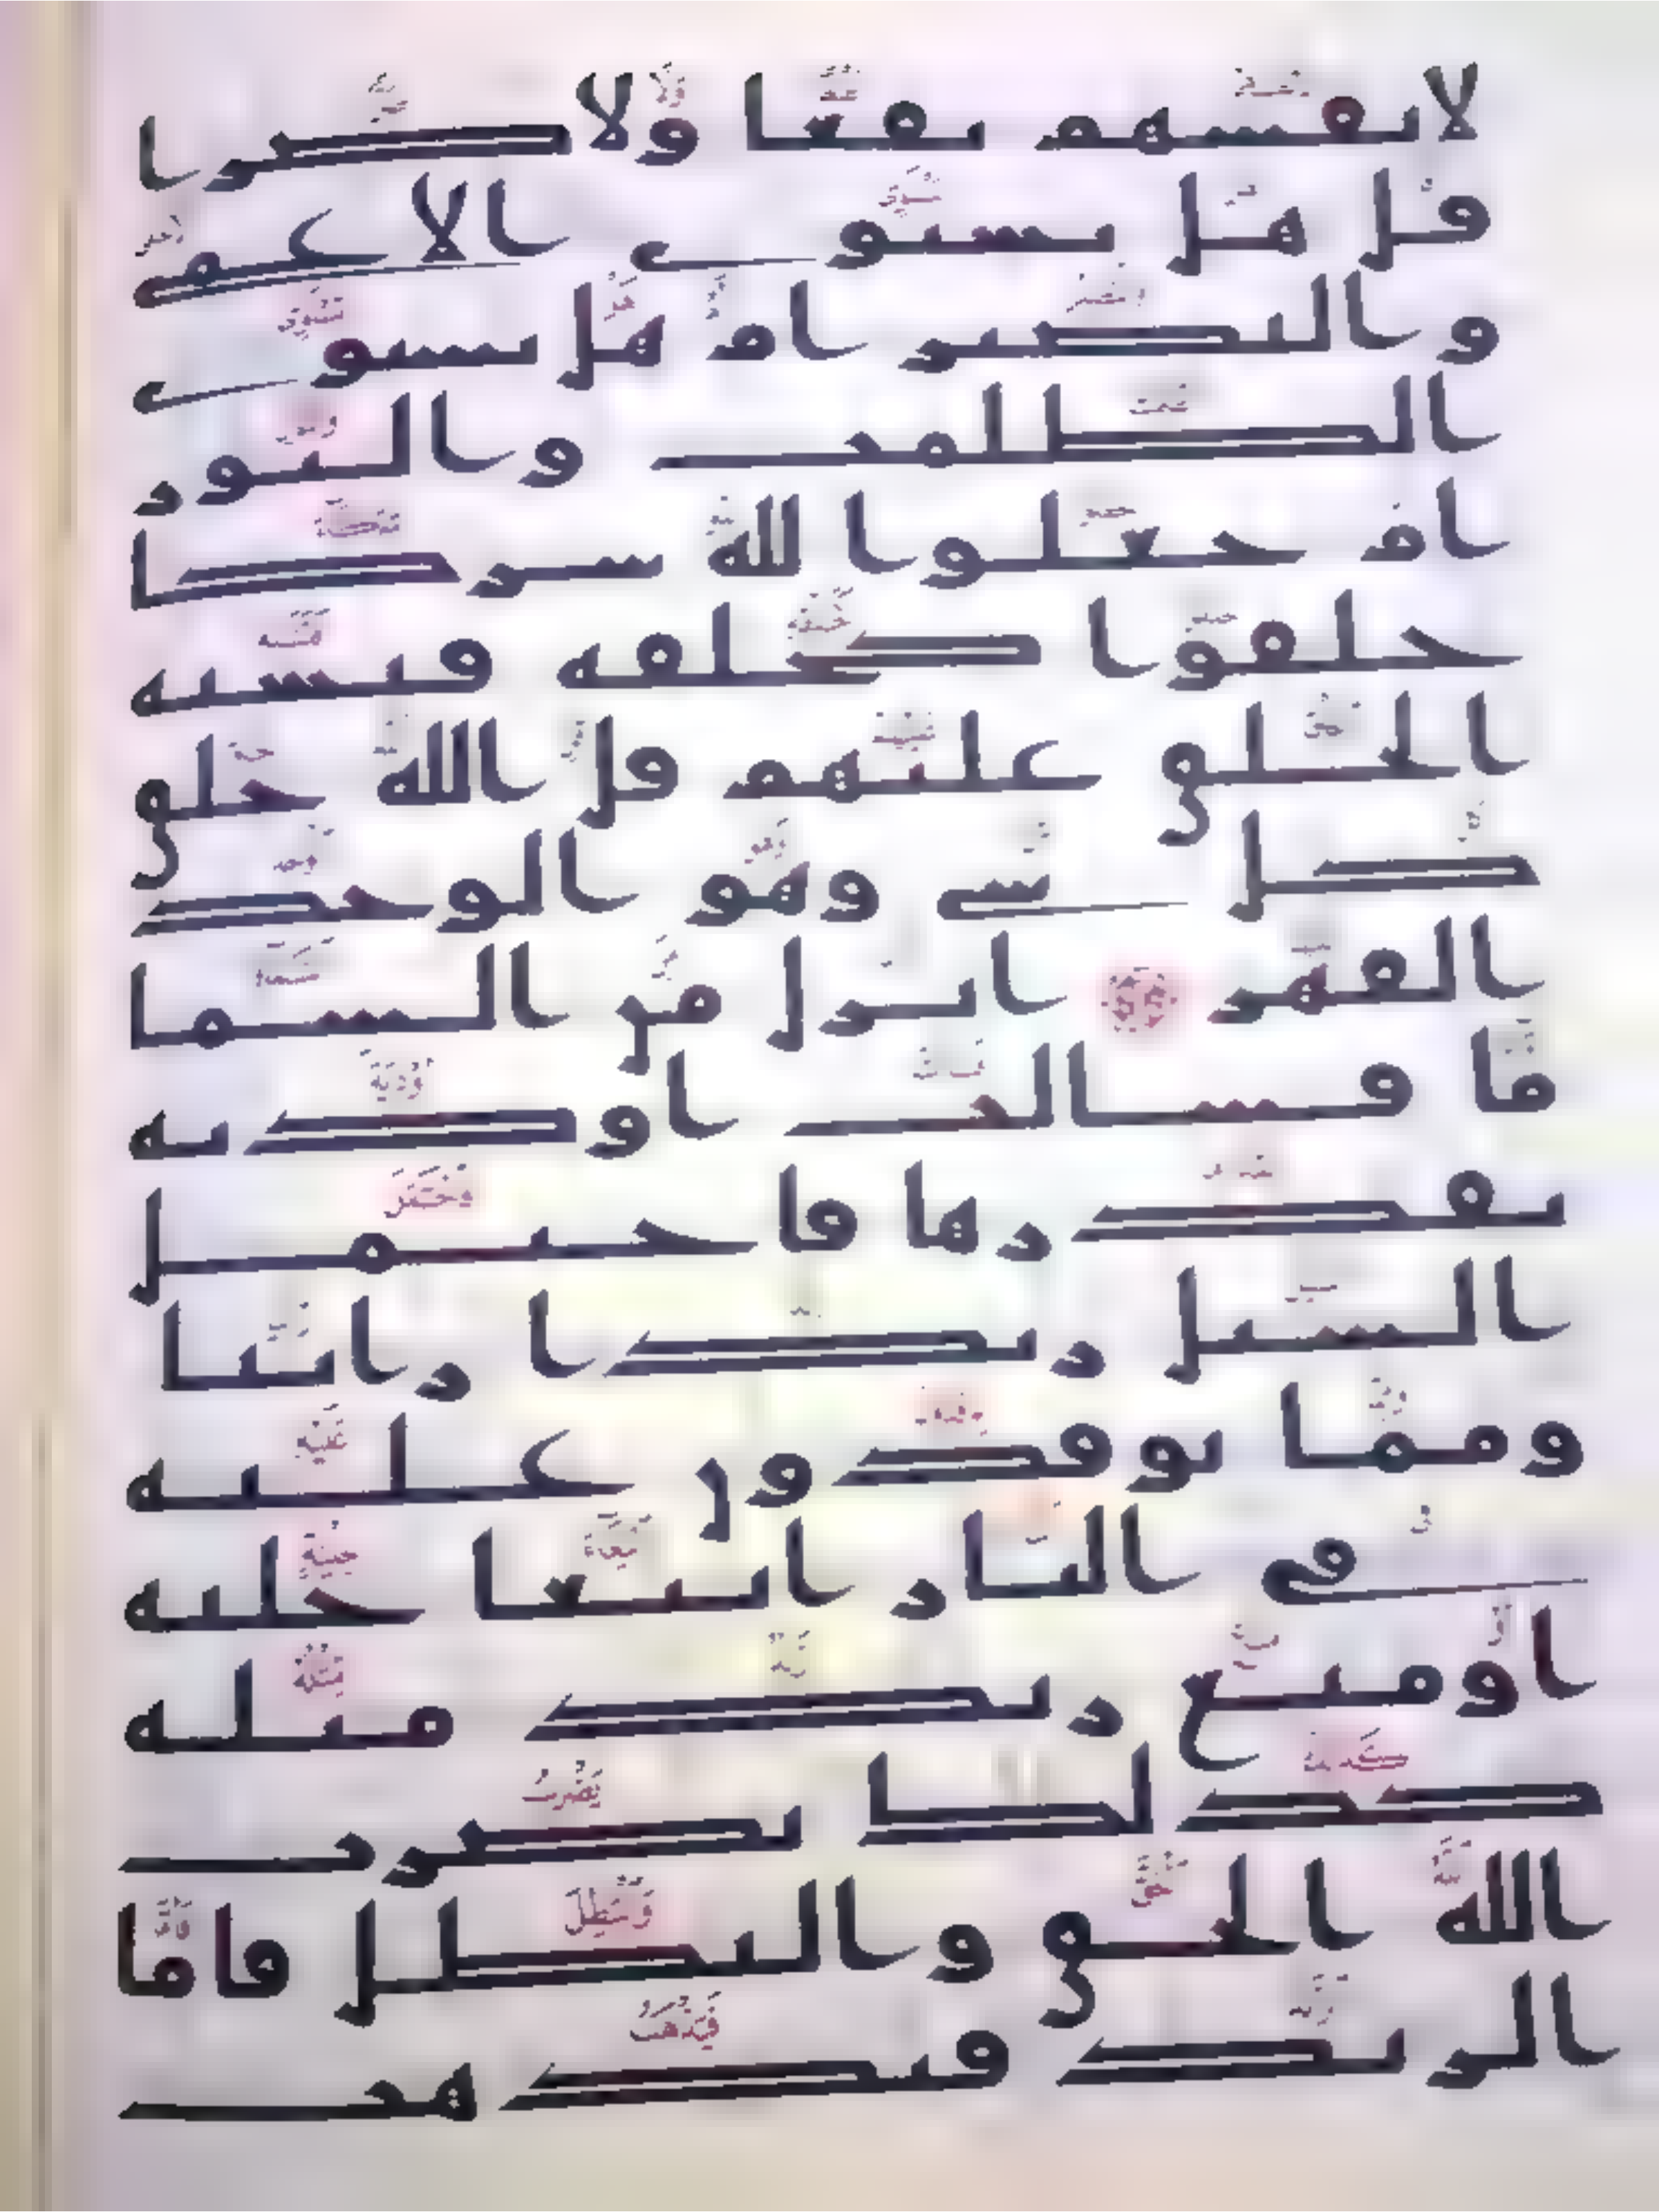 لانفسهم نفعا ولا ضرا
قل هل يستوي الاعمى
والبصير ام هل تستوي
الظلمت والنور
ام جعلوا لله شركا
خلقوا كخلقه فتشبه
الخلق عليهم قل الله خلق
كل شي وهو الوحد
القهر انزل من السما
ما فسالت اودية
بقدرها فاحتمل
السيل زبدا رابيا
ومما توقدون عليه
في النار ابتغا حلية
او متع زبد مثله
كذلك يضرب
الله الحق والبطل فاما
الزبد فيذهب